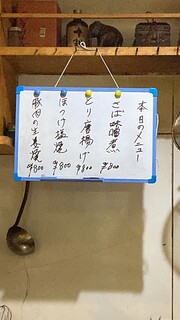 本日のメニュー
さば味噌煮 ¥800
とり唐揚げ ¥800
ほっけ塩焼 ¥800
豚肉の生姜焼 ¥800